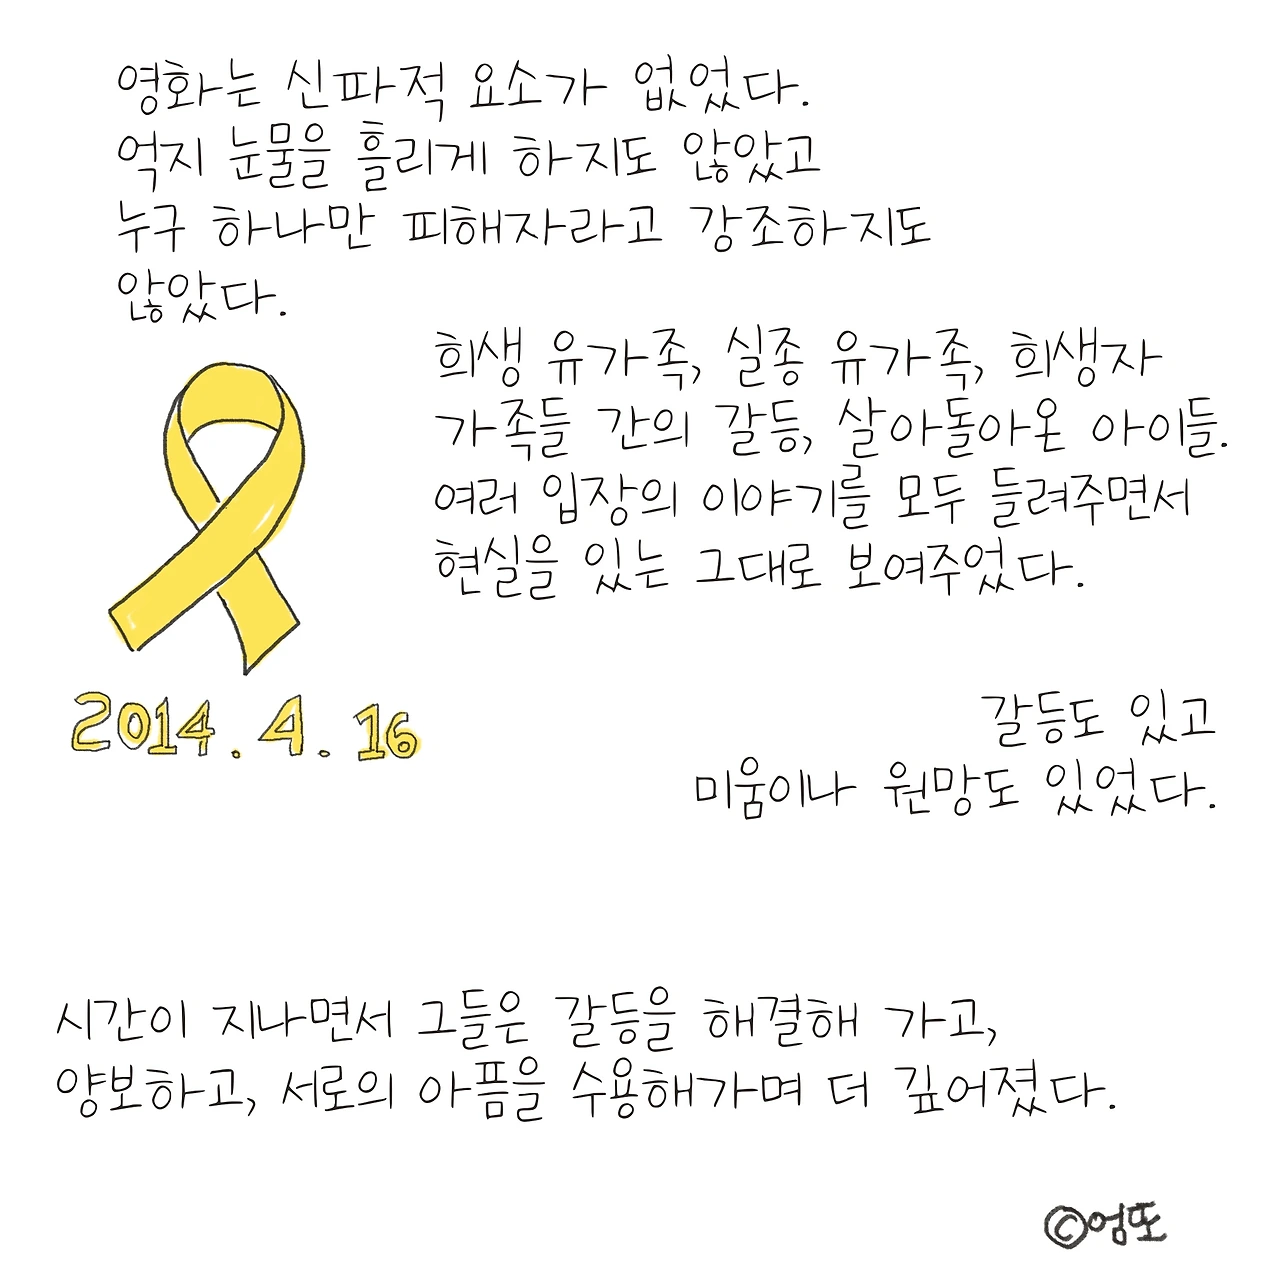 영화는 신파적 요소가 없었다.
억지 눈물을 흘리게 하지도 않았고
누구 하나만 피해자라고 강조하지도
않았다.
희생 유가족, 실종 유가족, 희생자
가족들 간의 갈등, 살아돌아온 아이들.
여러 입장의 이야기를 모두 들려주면서
현실을 있는 그대로 보여주었다.
2014. 4. 16
갈등도 있고
미움이나 원망도 있었다.
시간이 지나면서 그들은 갈등을 해결해 가고,
양보하고, 서로의 아픔을 수용해가며 더 깊어졌다.
©엄또